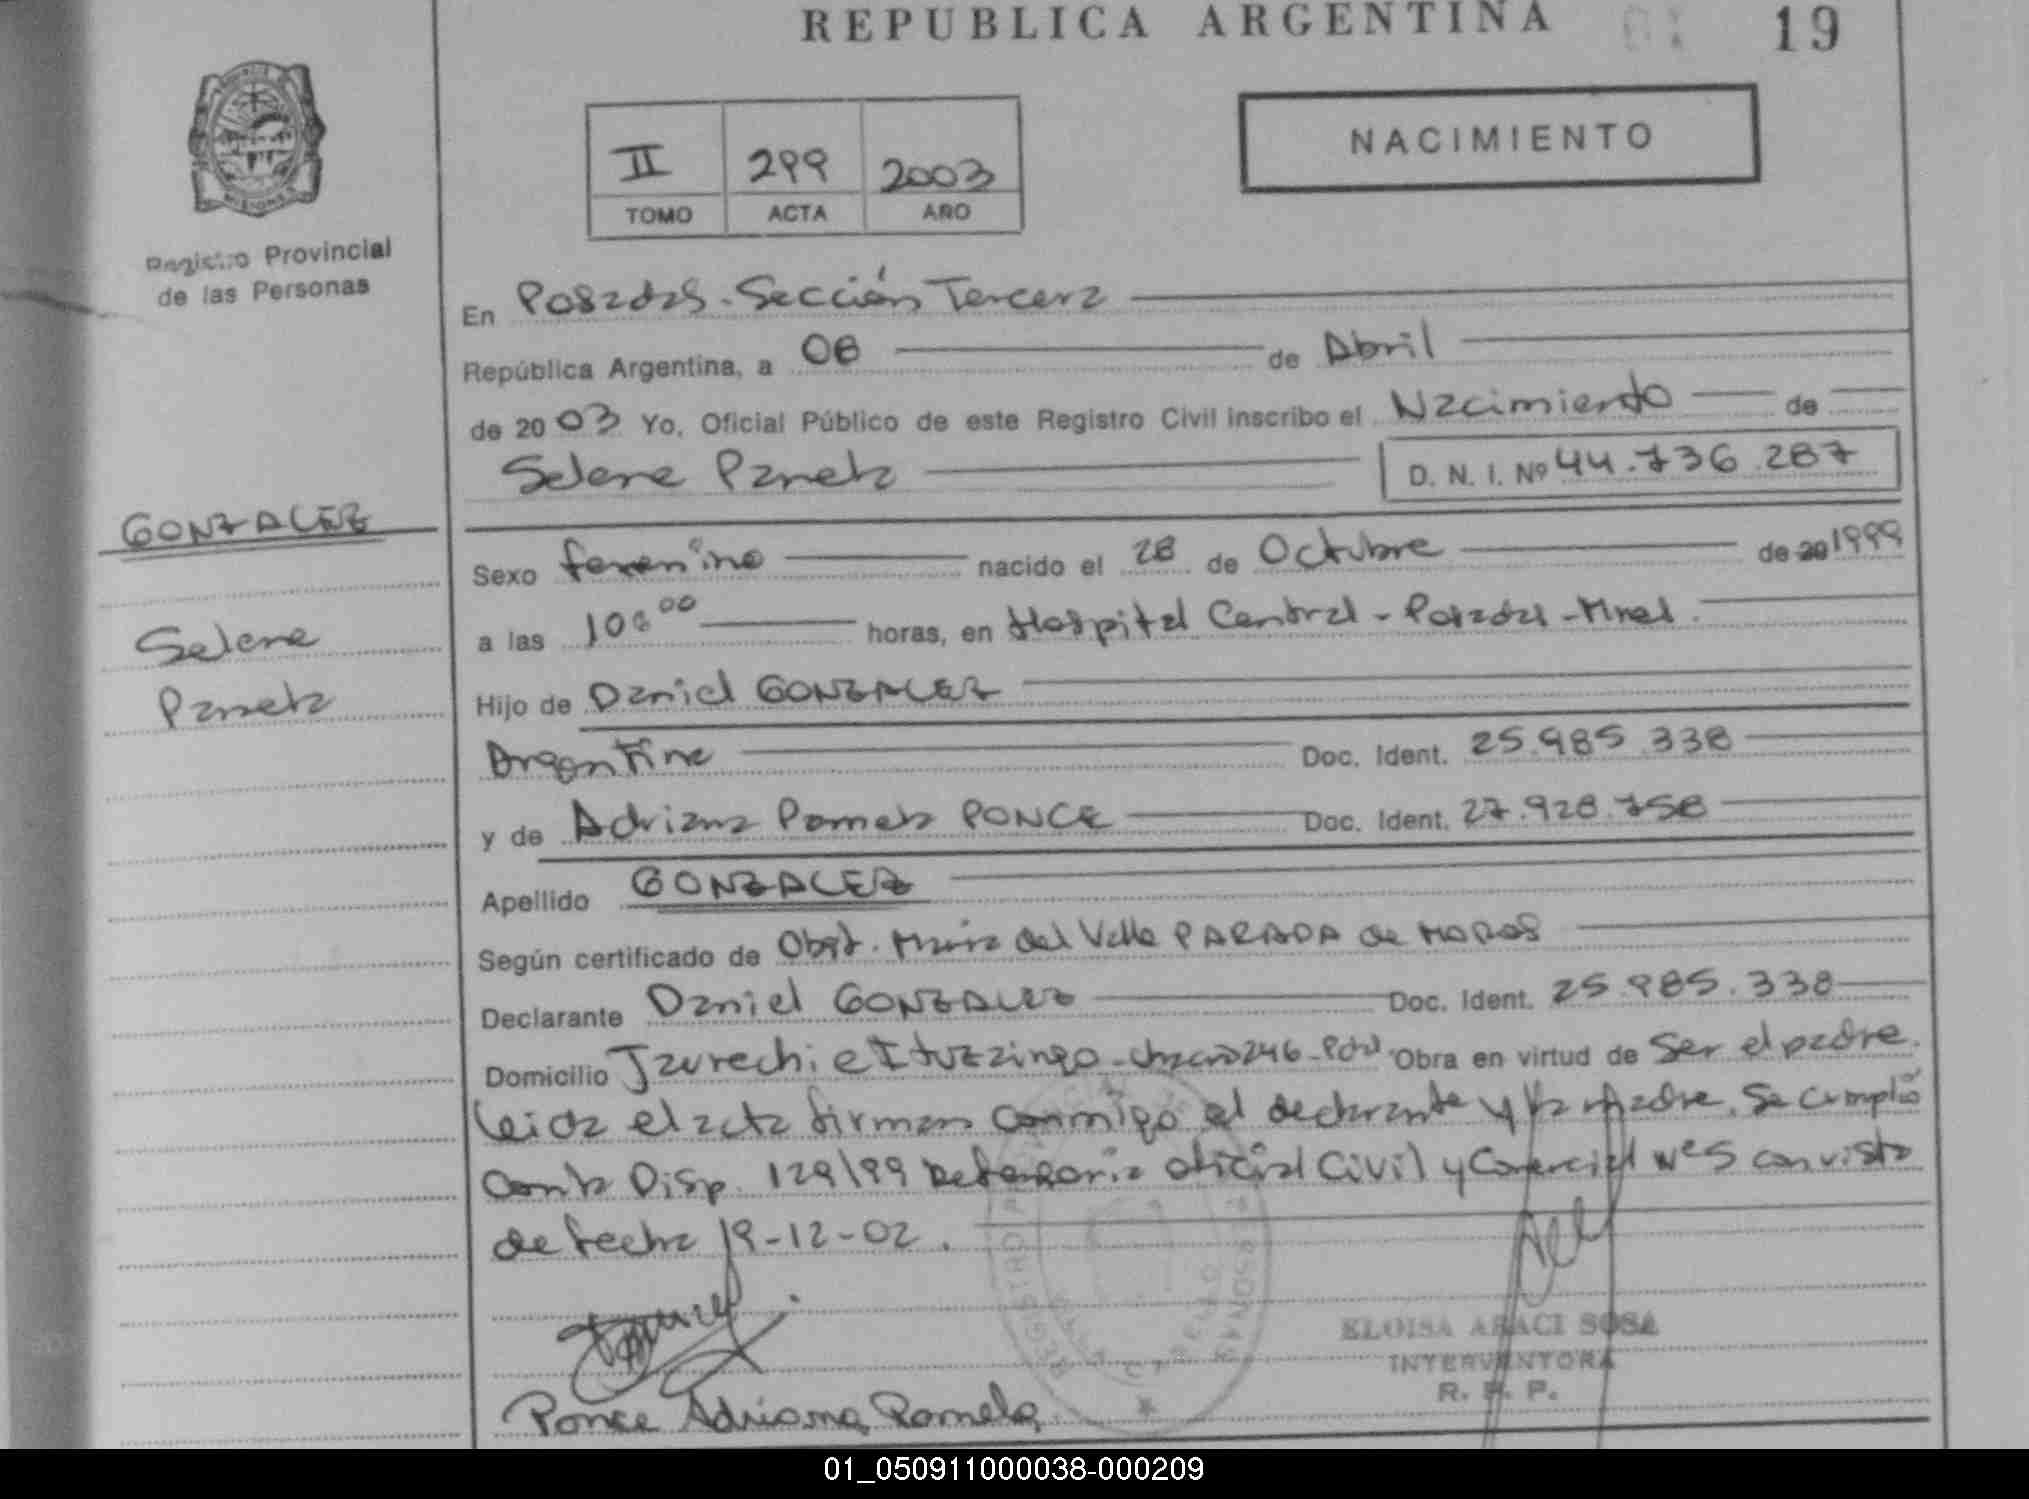 REPUBLICA ARGENTINA
19
II 299 2003
TOMO ACTA AÑO
NACIMIENTO
Registro Provincial
de las Personas
En Posadas - Sección Tercera
República Argentina, a 08 de Abril
de 2003 Yo, Oficial Público de este Registro Civil inscribo el Nacimiento de
Selene Pamela D. N. I. Nº 44.736.287
GONZALEZ
Selene
Pamela
Sexo femenino nacido el 28 de Octubre de 20 1999
a las 10:00 horas, en Hospital Central - Posadas - Mnes.
Hijo de Daniel GONZALEZ
Argentina Doc. Ident. 25.985.338
y de Adriana Pamela PONCE Doc. Ident. 27.928.758
Apellido GONZALEZ
Según certificado de Obst. María del Valle PARADA de
Declarante Daniel GONZALEZ Doc. Ident. 25.985.338
Domicilio Jaurechi e Ituzaingo - chacra 246 - Pdas Obra en virtud de Ser el padre.
Leida el acta firman conmigo el declarante y la madre. Se cumplió
con la Disp. 129/99 Defensoria oficial Civil y Comercial Nº 5 con vista
de fecha 19-12-02.
ELOISA ARACI SOSA
INTERVENTORA
R. P. P.
Ponce Adriana Pamela
01_050911000038-000209